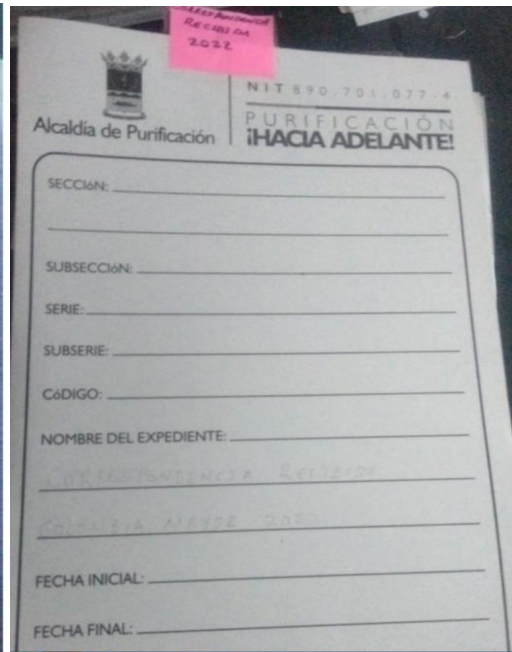 CORRESPONDENCIA
RECIBIDA
2022
Alcaldía de Purificación
NIT 890.701.077-4
PURIFICACIÓN
¡HACIA ADELANTE!
SECCIóN:
SUBSECCIóN:
SERIE:
SUBSERIE:
CóDIGO:
NOMBRE DEL EXPEDIENTE:
CORRESPONDENCIA RECIBIDA
COLOMBIA MAYOR 2022
FECHA INICIAL:
FECHA FINAL: